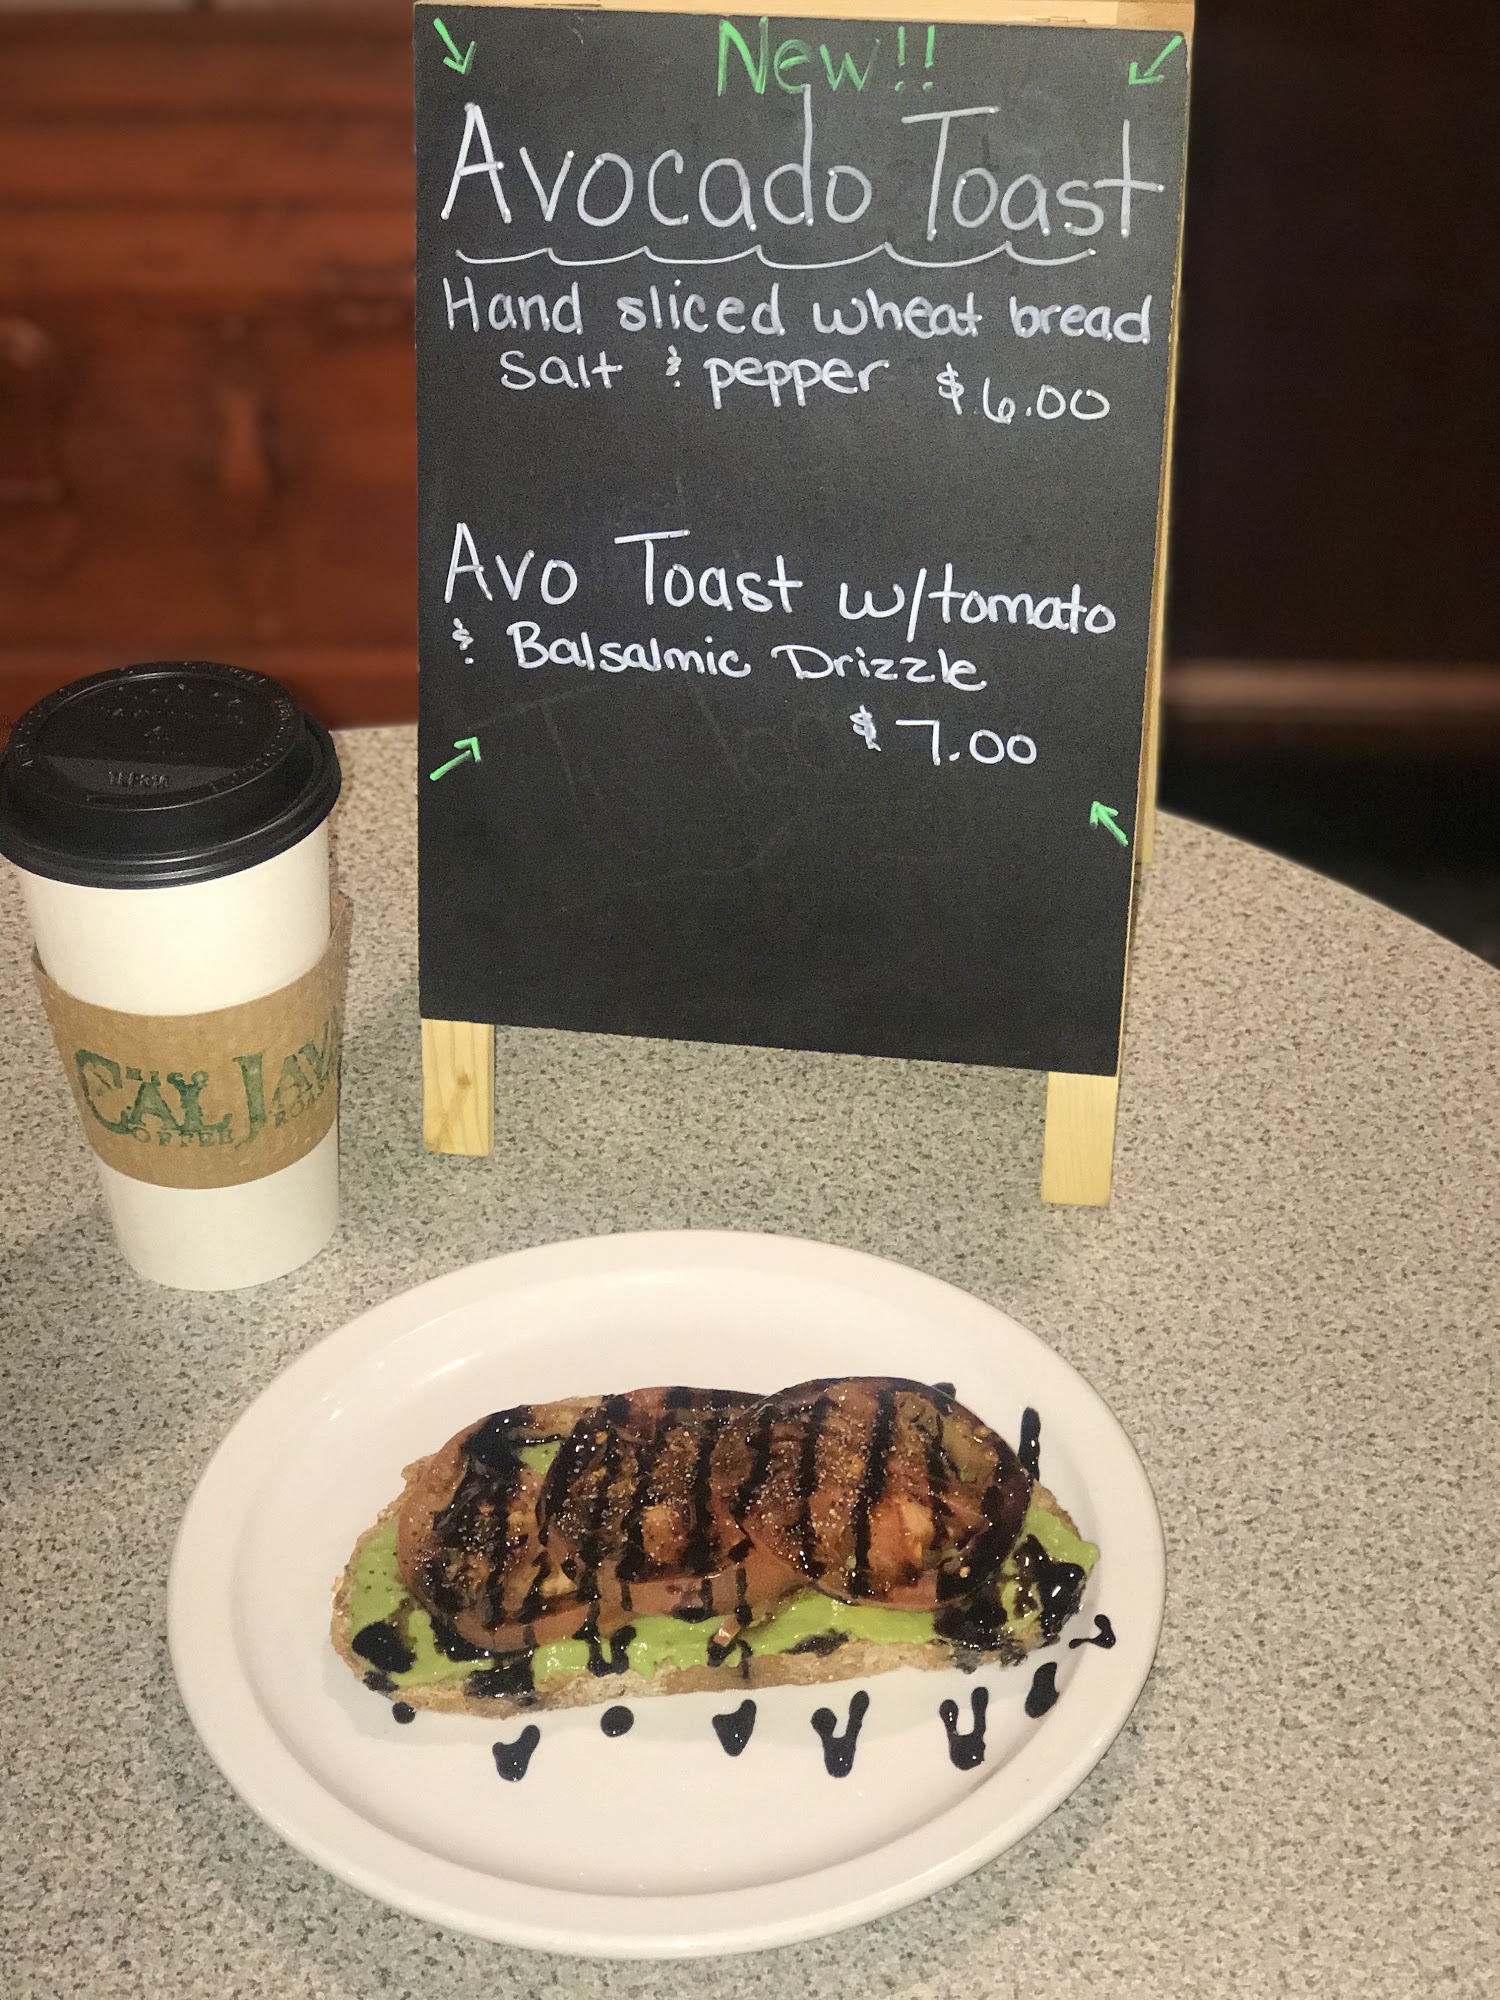 New!!
Avocado Toast
Hand sliced wheat bread
Salt & pepper $6.00
Avo Toast w/tomato
& Balsalmic Drizzle
$7.00
CAL JAVA
COFFEE